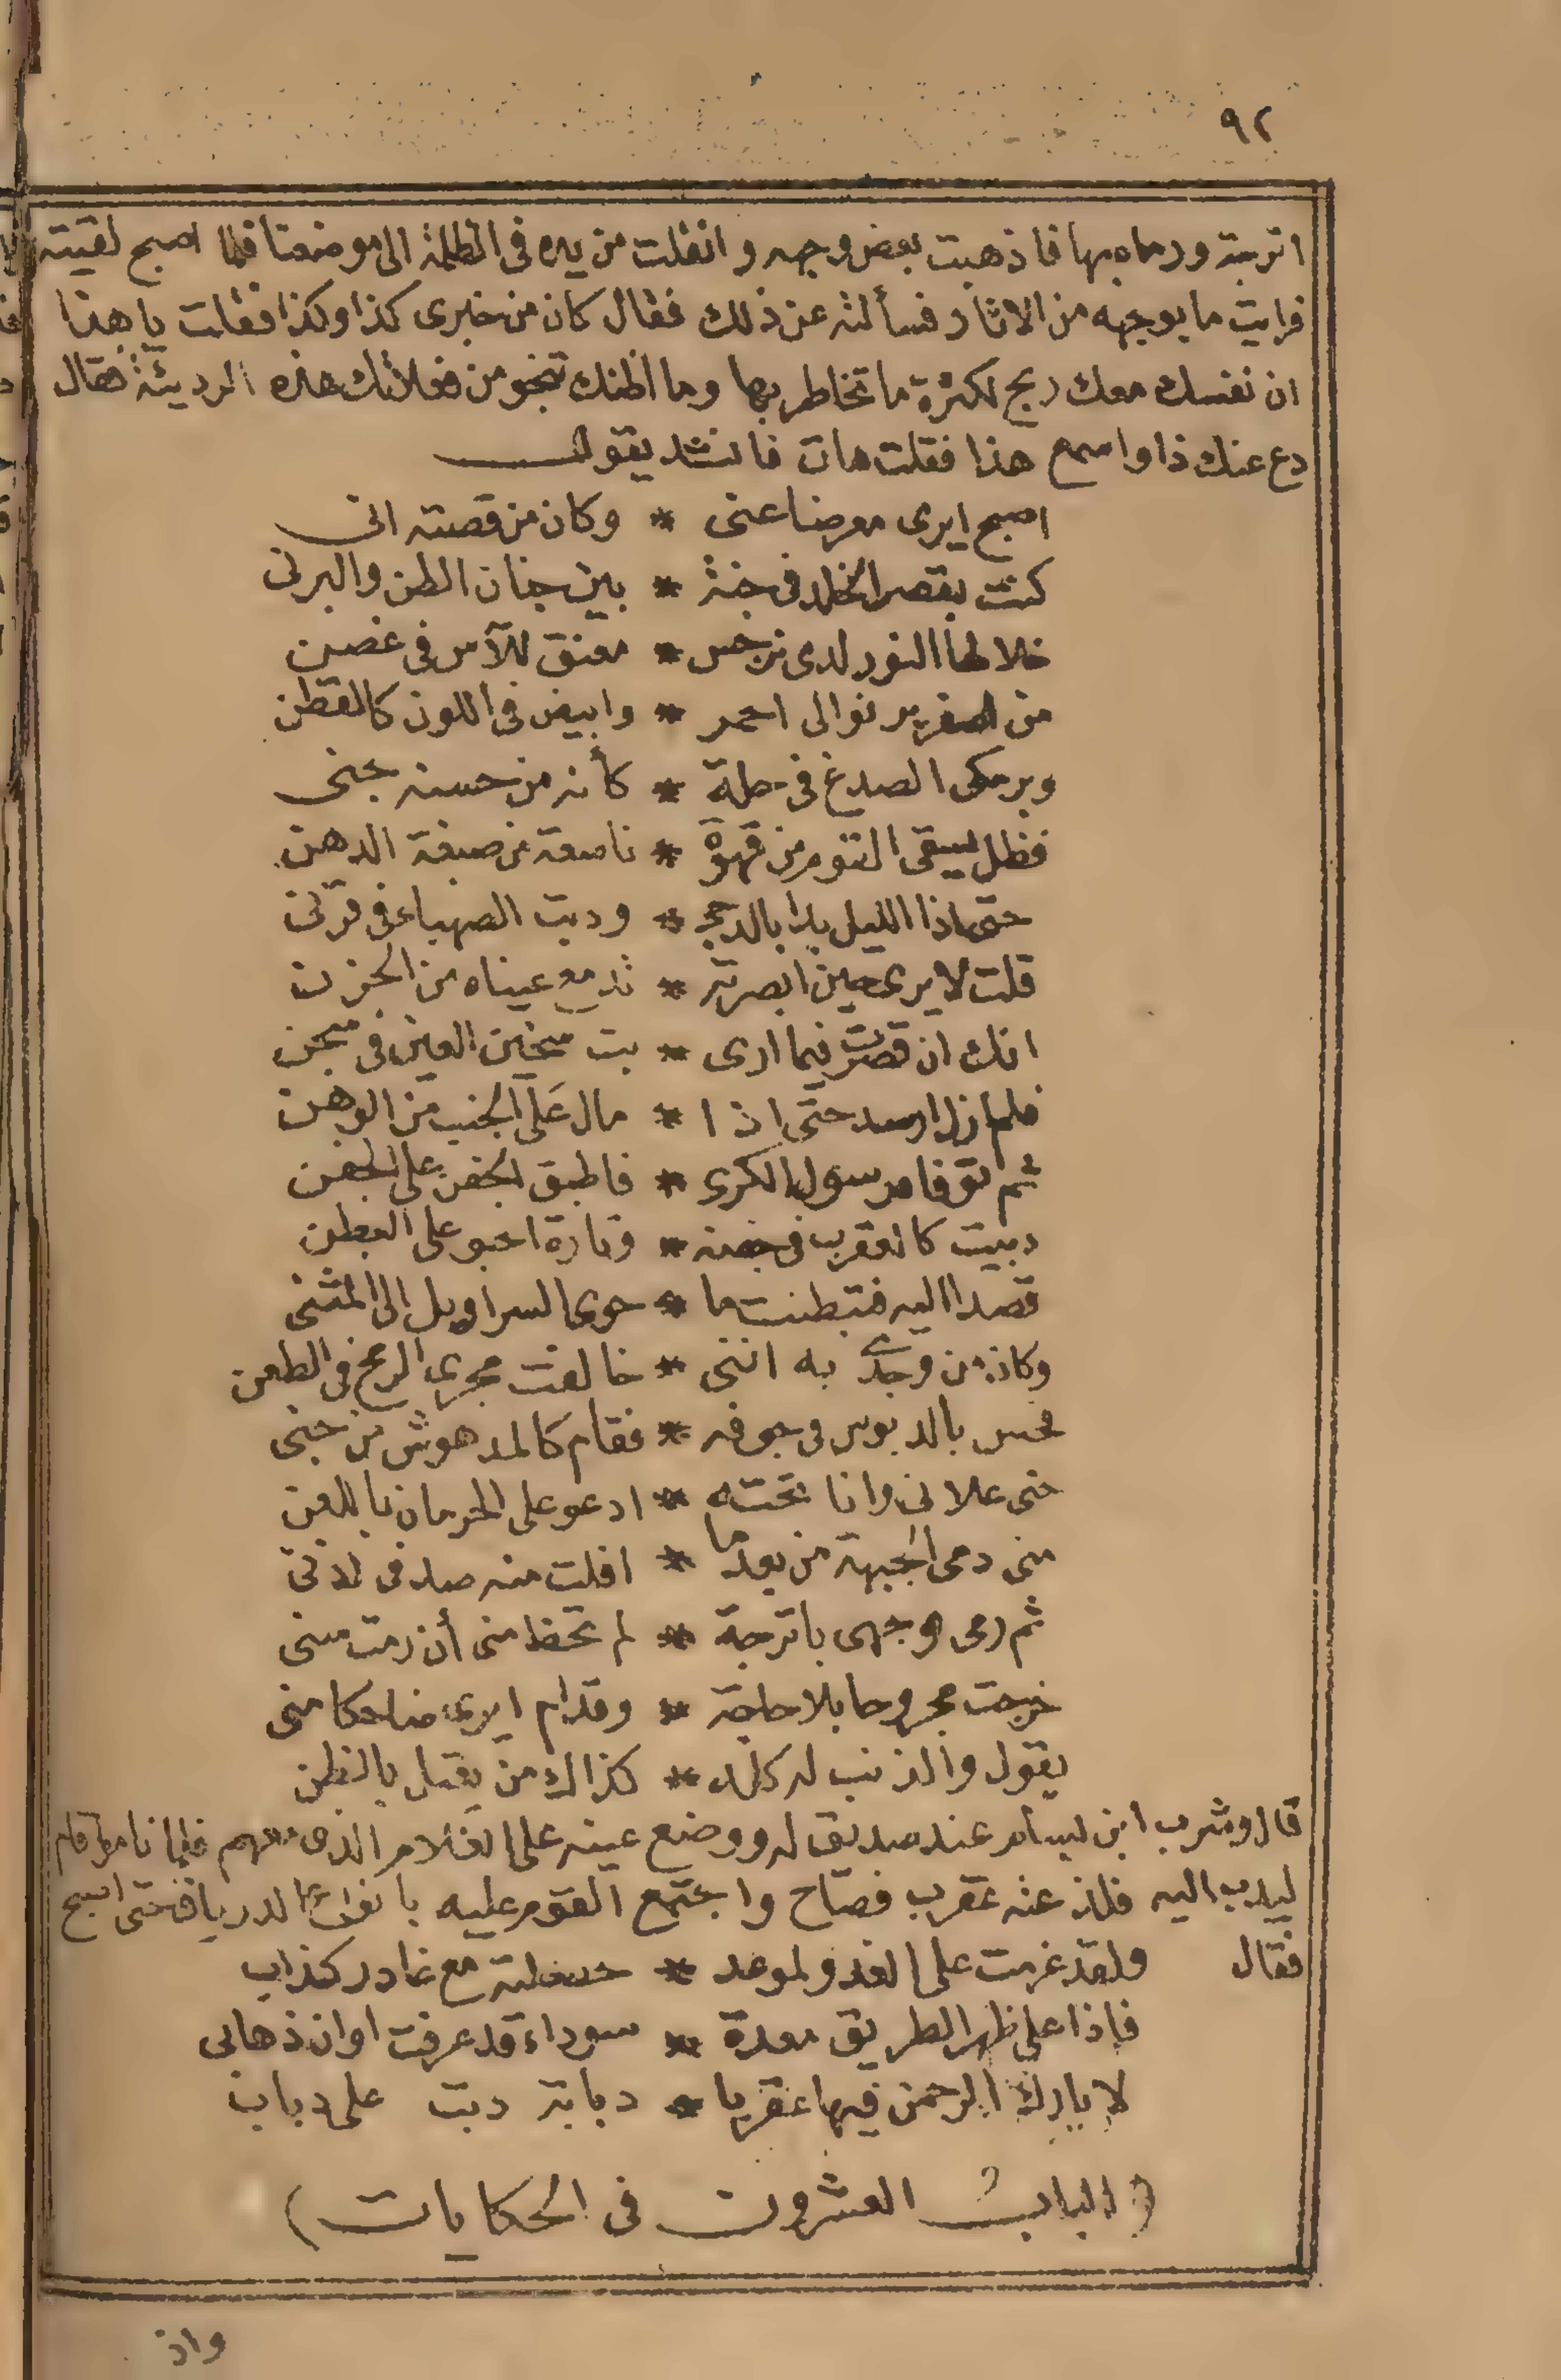 ٩٢
اترجة ورماه بها فاذهبت بعض وجهه وانفلت من يده فى الظلمة الى موضعنا فلما اصبح لقيته
فرايت ما بوجهه من الاثار فسألته عن ذلك فقال كان من خبرى كذا وكذا فقلت يا هذا
ان نفسك معك ربح لكثرة ما تخاطر بها وما اظنك تنجو من فعلاتك هذه الرديئة فقال
دع عنك ذا واسمع هذا فقلت هات فانشد يقول
اصبح ايرى معرضا عنى * وكان من قصته انى
كنت بقصر الخلد فى جنة * بين جنان الطن والبرنى
خلالها النور لدى نرجس * معنق للآس فى غصن
من اصفر يرنو الى احمر * وابيض فى اللون كالقطن
وبرمكى الصدغ فى حلة * كأنه من حسنه جنى
فظل يسقى القوم من قهوة * ناصعة من صبغة الدهن
حتى اذا الليل بدا بالدجى * ودبت الصهباء فى قرنى
قلت لايرى حين ابصرته * تدمع عيناه من الحزن
انك ان قصرت فيما ارى * بت سخين العين فى سجن
فلم ازل ارصد حتى اذا * مال على الجنب من الوهن
ثم توفاه رسول الكرى * فاطبق الجفن على الجفن
دببت كالعقرب فى خفية * وتارة احبو على البطن
قصدا اليه فتبطنت ما * حوى السراويل الى المثنى
وكان من وجدى به اننى * خالفت مجرى الرمح فى الطعن
فحس بالدبوس فى جوفه * فقام كالمدهوش من جنى
حتى علانى وانا تحته * ادعو على الحرمان باللعن
منى دمى الجبهة من بعدما * افلت منه صدفى اذنى
ثم رمى وجهى باترجة * لم تخط منى أن رمت سنى
خرجت مجروحا بلا حاجة * وقد ام ايرى ضاحكا منى
يقول والذنب له كله * كذاك من يعمل بالظن
قال وشرب ابن بسام عند صديق له ووضع عينه على الغلام الذى معهم فلما ناموا قام
ليدب اليه فلذعته عقرب فصاح واجتمع القوم عليه بانواع الدرياق حتى اصبح
فقال ولقد عزمت على الغدو لموعد * حصلته مع غادر كذاب
فاذا على ظهر الطريق معدة * سوداء قد عرفت اوان ذهابى
لا بارك الرحمن فيها عقربا * دبابة دبت على دباب
(الباب العشرون فى الحكايات)
واذ